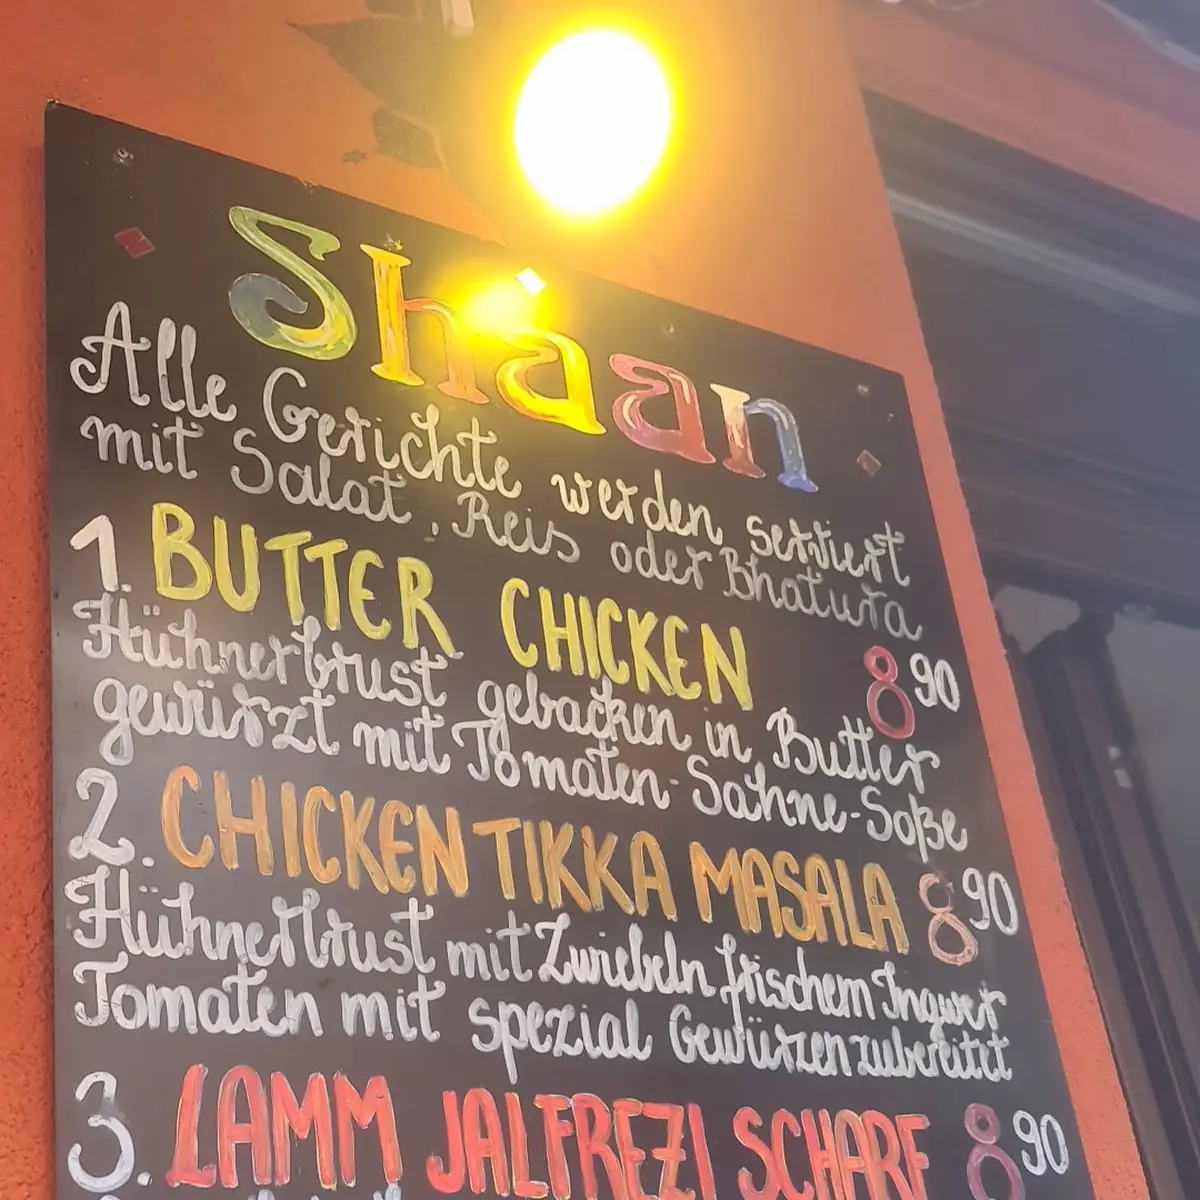 Shaan
Alle Gerichte werden serviert
mit Salat, Reis oder Bhatura
1. BUTTER CHICKEN 8 90
Hühnerbrust gebacken in Butter
gewürzt mit Tomaten-Sahne-Soße
2. CHICKEN TIKKA MASALA 8 90
Hühnerbrust mit Zwiebeln frischem Ingwer
Tomaten mit spezial Gewürzen zubereitet
3. LAMM JALFREZI SCHARF 8 90